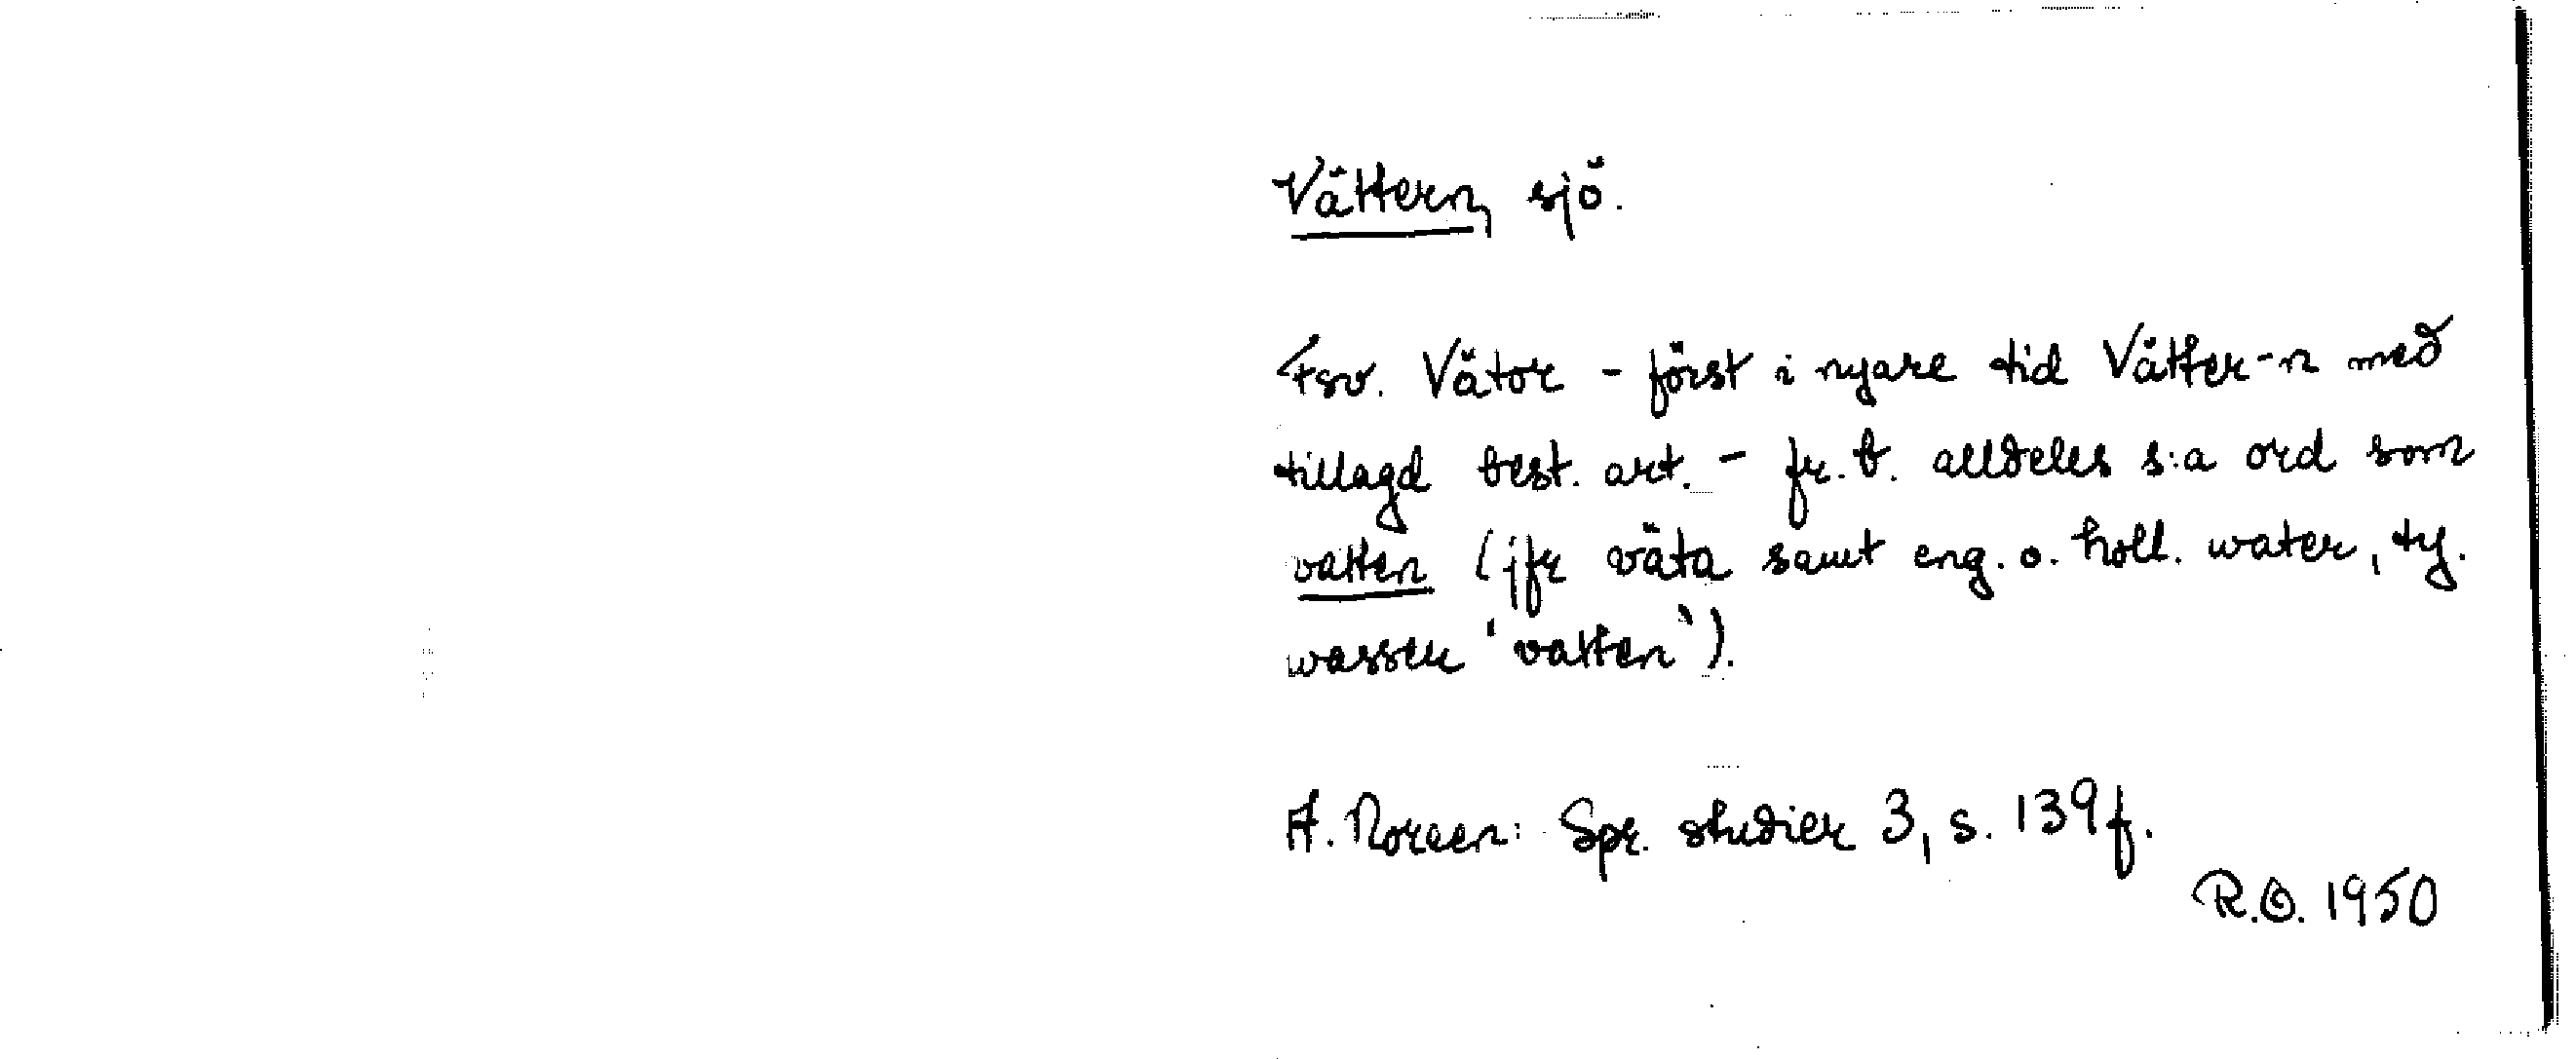 Vättern, sjö.
Fsv. Vätor - först i nyare tid Vätter-n med
tillagd best. art. - fr. b. alldeles s:a ord som
vatten (jfr väta samt eng. o. holl. water, ty.
wasser 'vatten').
A. Noreen: Spr. studier 3, s. 139 f.
R.O. 1950